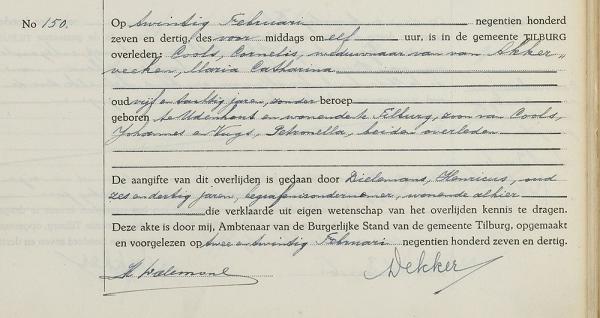 No 150.
Op twintig Februari negentien honderd
zeven en dertig, des voor middags om elf uur, is in de gemeente TILBURG
overleden: Cools, Cornelis, weduwnaar van van Akker-
veeken, Maria Catharina
oud vijf en tachtig jaren, zonder beroep
geboren te Udenhout en wonende te Tilburg, zoon van Cools,
Johannes en Vugs, Petronella, beiden overleden
De aangifte van dit overlijden is gedaan door Dielemans, Henricus, oud
zes en dertig jaren, begrafenisondernemer, wonende alhier
die verklaarde uit eigen wetenschap van het overlijden kennis te dragen.
Deze akte is door mij, Ambtenaar van de Burgerlijke Stand van de gemeente Tilburg, opgemaakt
en voorgelezen op twee en twintig Februari negentien honderd zeven en dertig.
Dekker